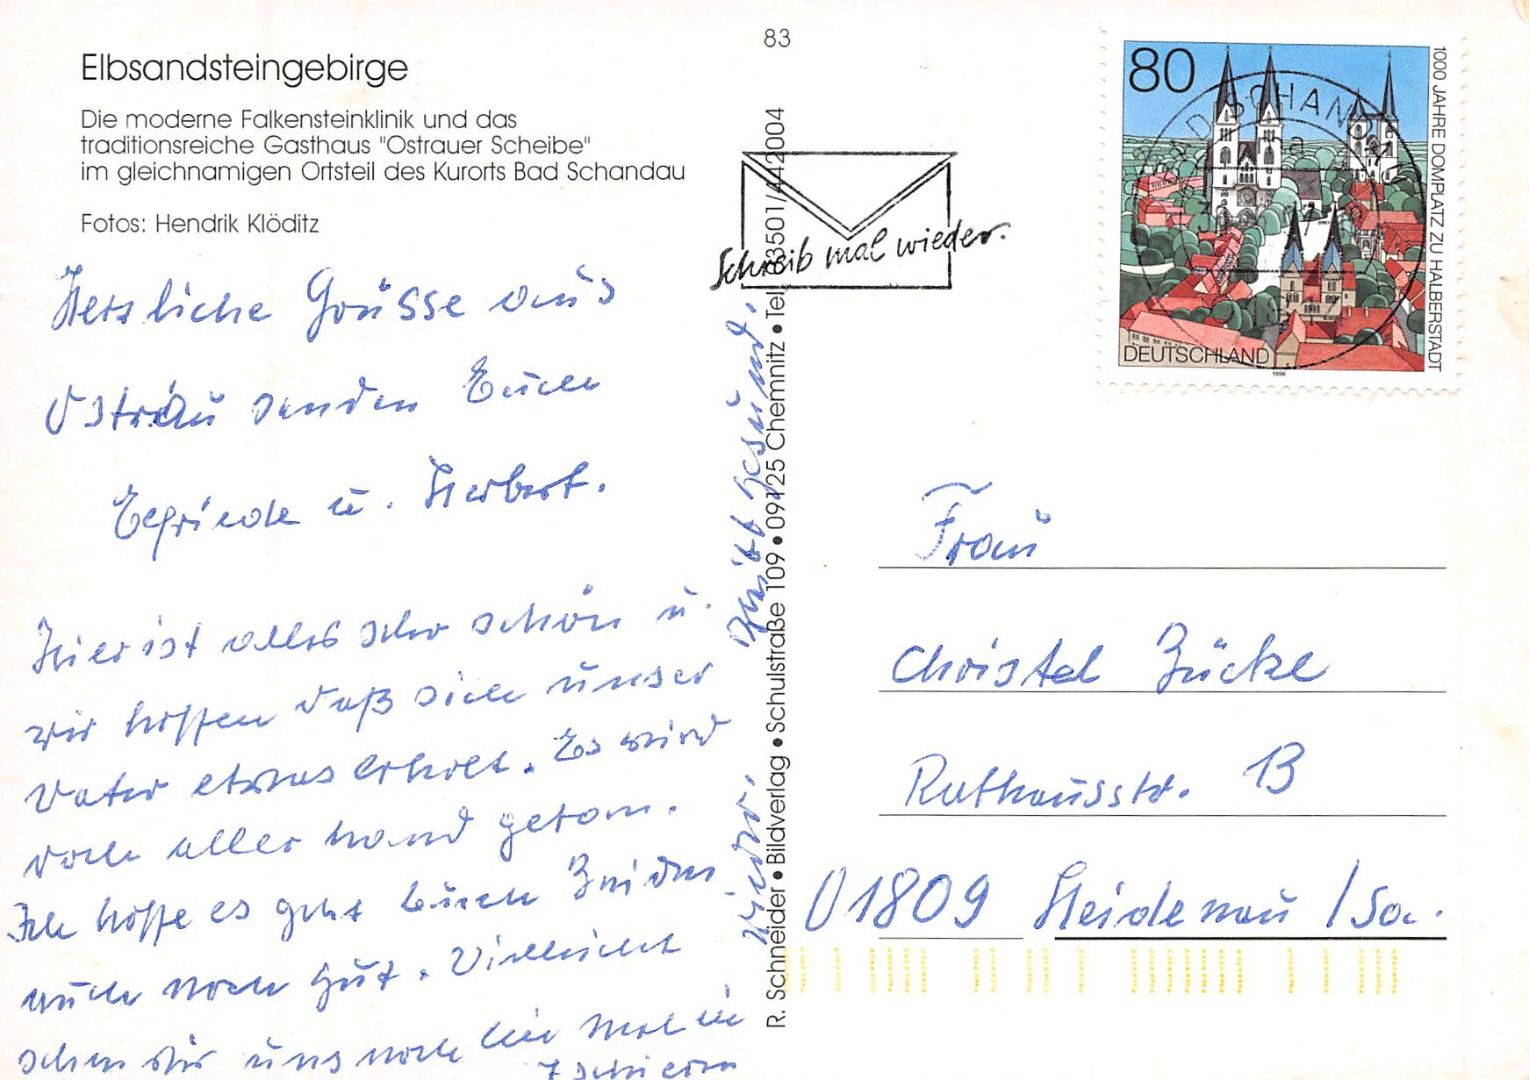 83
Elbsandsteingebirge
Die moderne Falkensteinklinik und das
traditionsreiche Gasthaus "Ostrauer Scheibe"
im gleichnamigen Ortsteil des Kurorts Bad Schandau
Fotos: Hendrik Klöditz
Herzliche Grüsse aus
Ostrau senden Euch
u. Herbert.
Hier ist alles sehr schön u.
wir hoffen daß sich unser
Vater etwas erholt. Es wird
doch aller hand getan.
Ich hoffe es geht Euch Beiden
auch noch gut. Vielleicht
sehen wir uns noch ein mal in
wieder.
Bleibt gesund.
R. Schneider • Bildverlag • Schulstraße 109 • 09125 Chemnitz • Tel. 03501/442004
Schreib mal wieder.
80
1000 JAHRE DOMPLATZ ZU HALBERSTADT
DEUTSCHLAND
1996
BAD SCHANDAU
a
Frau
Christel Zücke
Rathausstr. 13
01809 Heidenau /Sa.